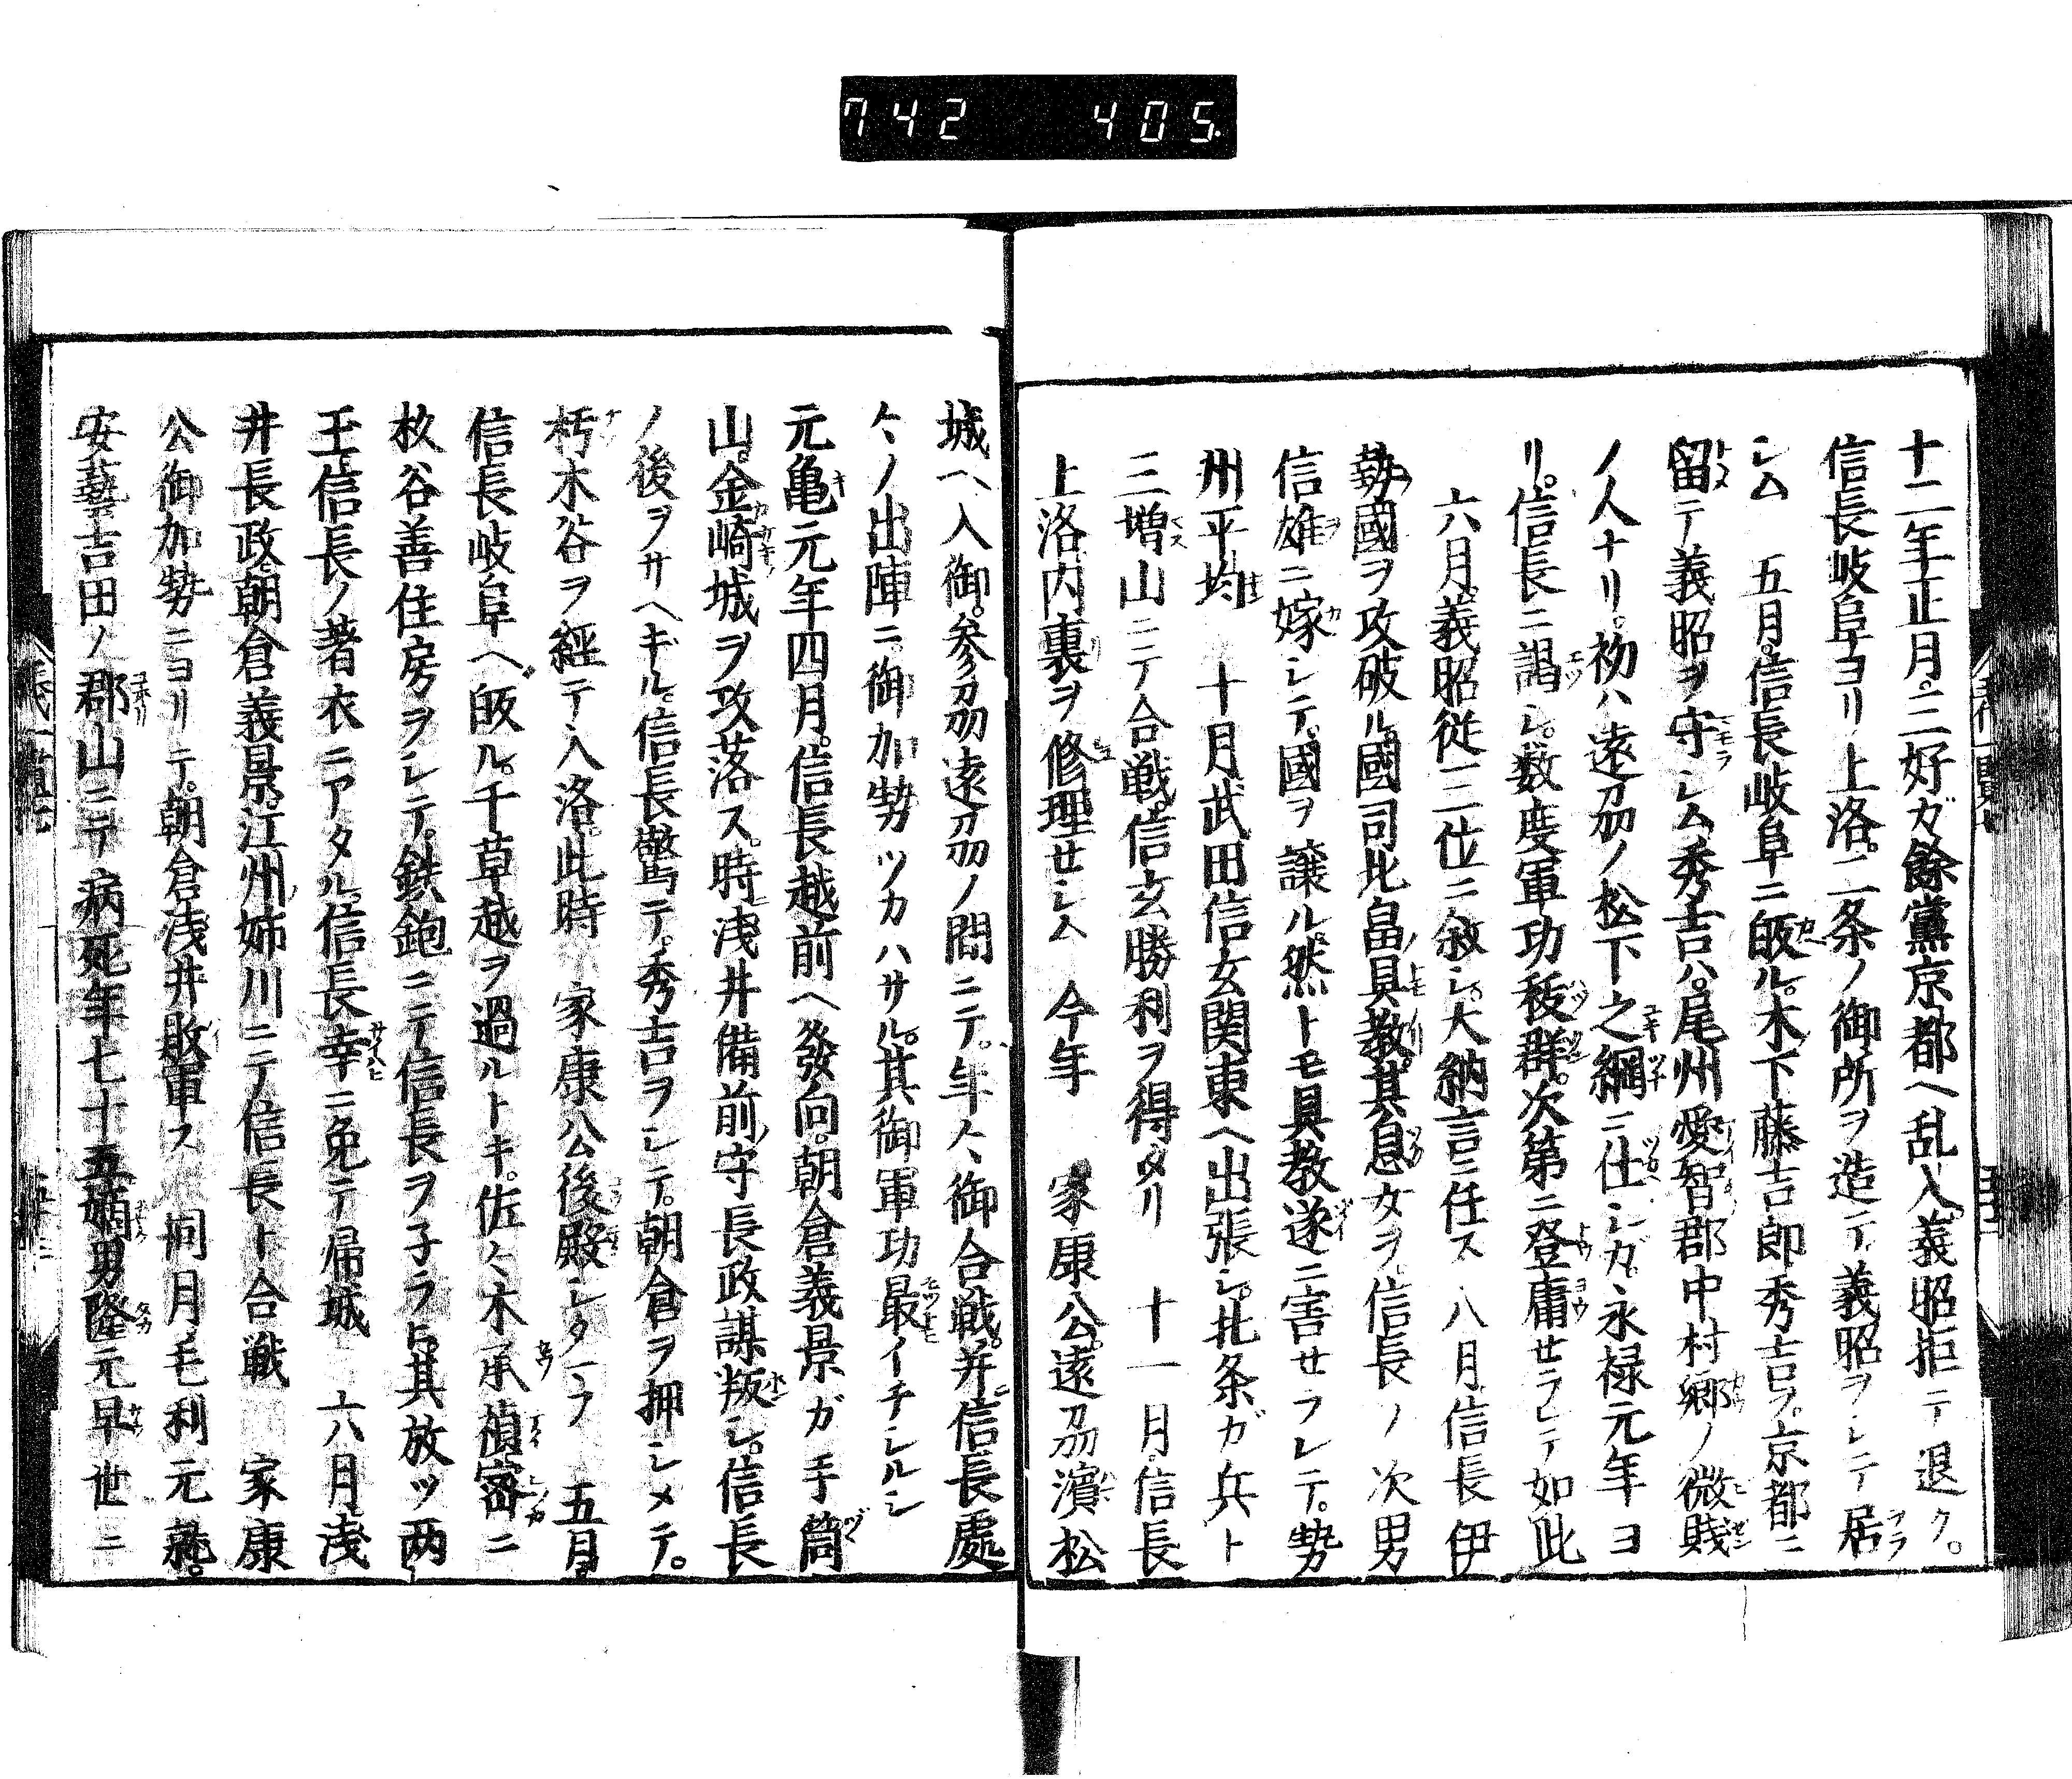 742 405.
十二年正月。三好ガ餘黨京都ヘ乱入。義昭拒テ退ク。
信長岐阜ヨリ上洛。二条ノ御所ヲ造テ。義昭ヲシテ居
シム　五月。信長岐阜ニ皈ル。木下藤吉郎秀吉ヲ。京都ニ
留テ義昭ヲ守シム。秀吉ハ。尾州愛智郡中村郷ノ微賤
ノ人ナリ。初ハ遠刕ノ松下之綱ニ仕シガ。永禄元年ヨ
リ。信長ニ謁シ。数度軍功秡群。次第ニ登庸セラレテ如此
六月。義昭従三位ニ敘シ。大納言ニ任ス　八月信長伊
勢國ヲ攻破ル。國司北畠具教。其息女ヲ。信長ノ次男
信雄ニ嫁シテ。國ヲ譲ル。然トモ具教遂ニ害セラレテ。勢
州平均　十月武田信玄関東ヘ出張シ。北条ガ兵ト
三増山ニテ合戦。信玄勝利ヲ得タリ　十一月。信長
上洛内裏ヲ修理セシム　今年　家康公。遠刕濵松
城ヘ入御。参刕遠刕ノ間ニテ。年〻御合戦。并信長處
〻ノ出陣ニ。御加勢ツカハサル。其御軍功最イチシルシ
元亀元年四月。信長越前ヘ發向。朝倉義景ガ手筒
山。金崎城ヲ攻落ス。時浅井備前守長政謀叛シ。信長
ノ後ヲサヘギル。信長驚テ。秀吉ヲシテ。朝倉ヲ押シメテ。
朽木谷ヲ經テ入洛。此時　家康公後殿シタマフ　五月。
信長岐阜ヘ皈ル。千草越ヲ過ルトキ。佐〻木承禎密ニ
杦谷善住房ヲシテ。鉄鉋ニテ信長ヲ子ラヒ。其放ツ两
玉。信長ノ著衣ニアタル。信長幸ニ免テ帰城　六月。浅
井長政。朝倉義景。江州姉川ニテ信長ト合戦　家康
公御加勢ニヨリテ。朝倉浅井敗軍ス　同月毛利元就。
安藝吉田ノ郡山ニテ病死年七十五嫡男隆元早世ニ